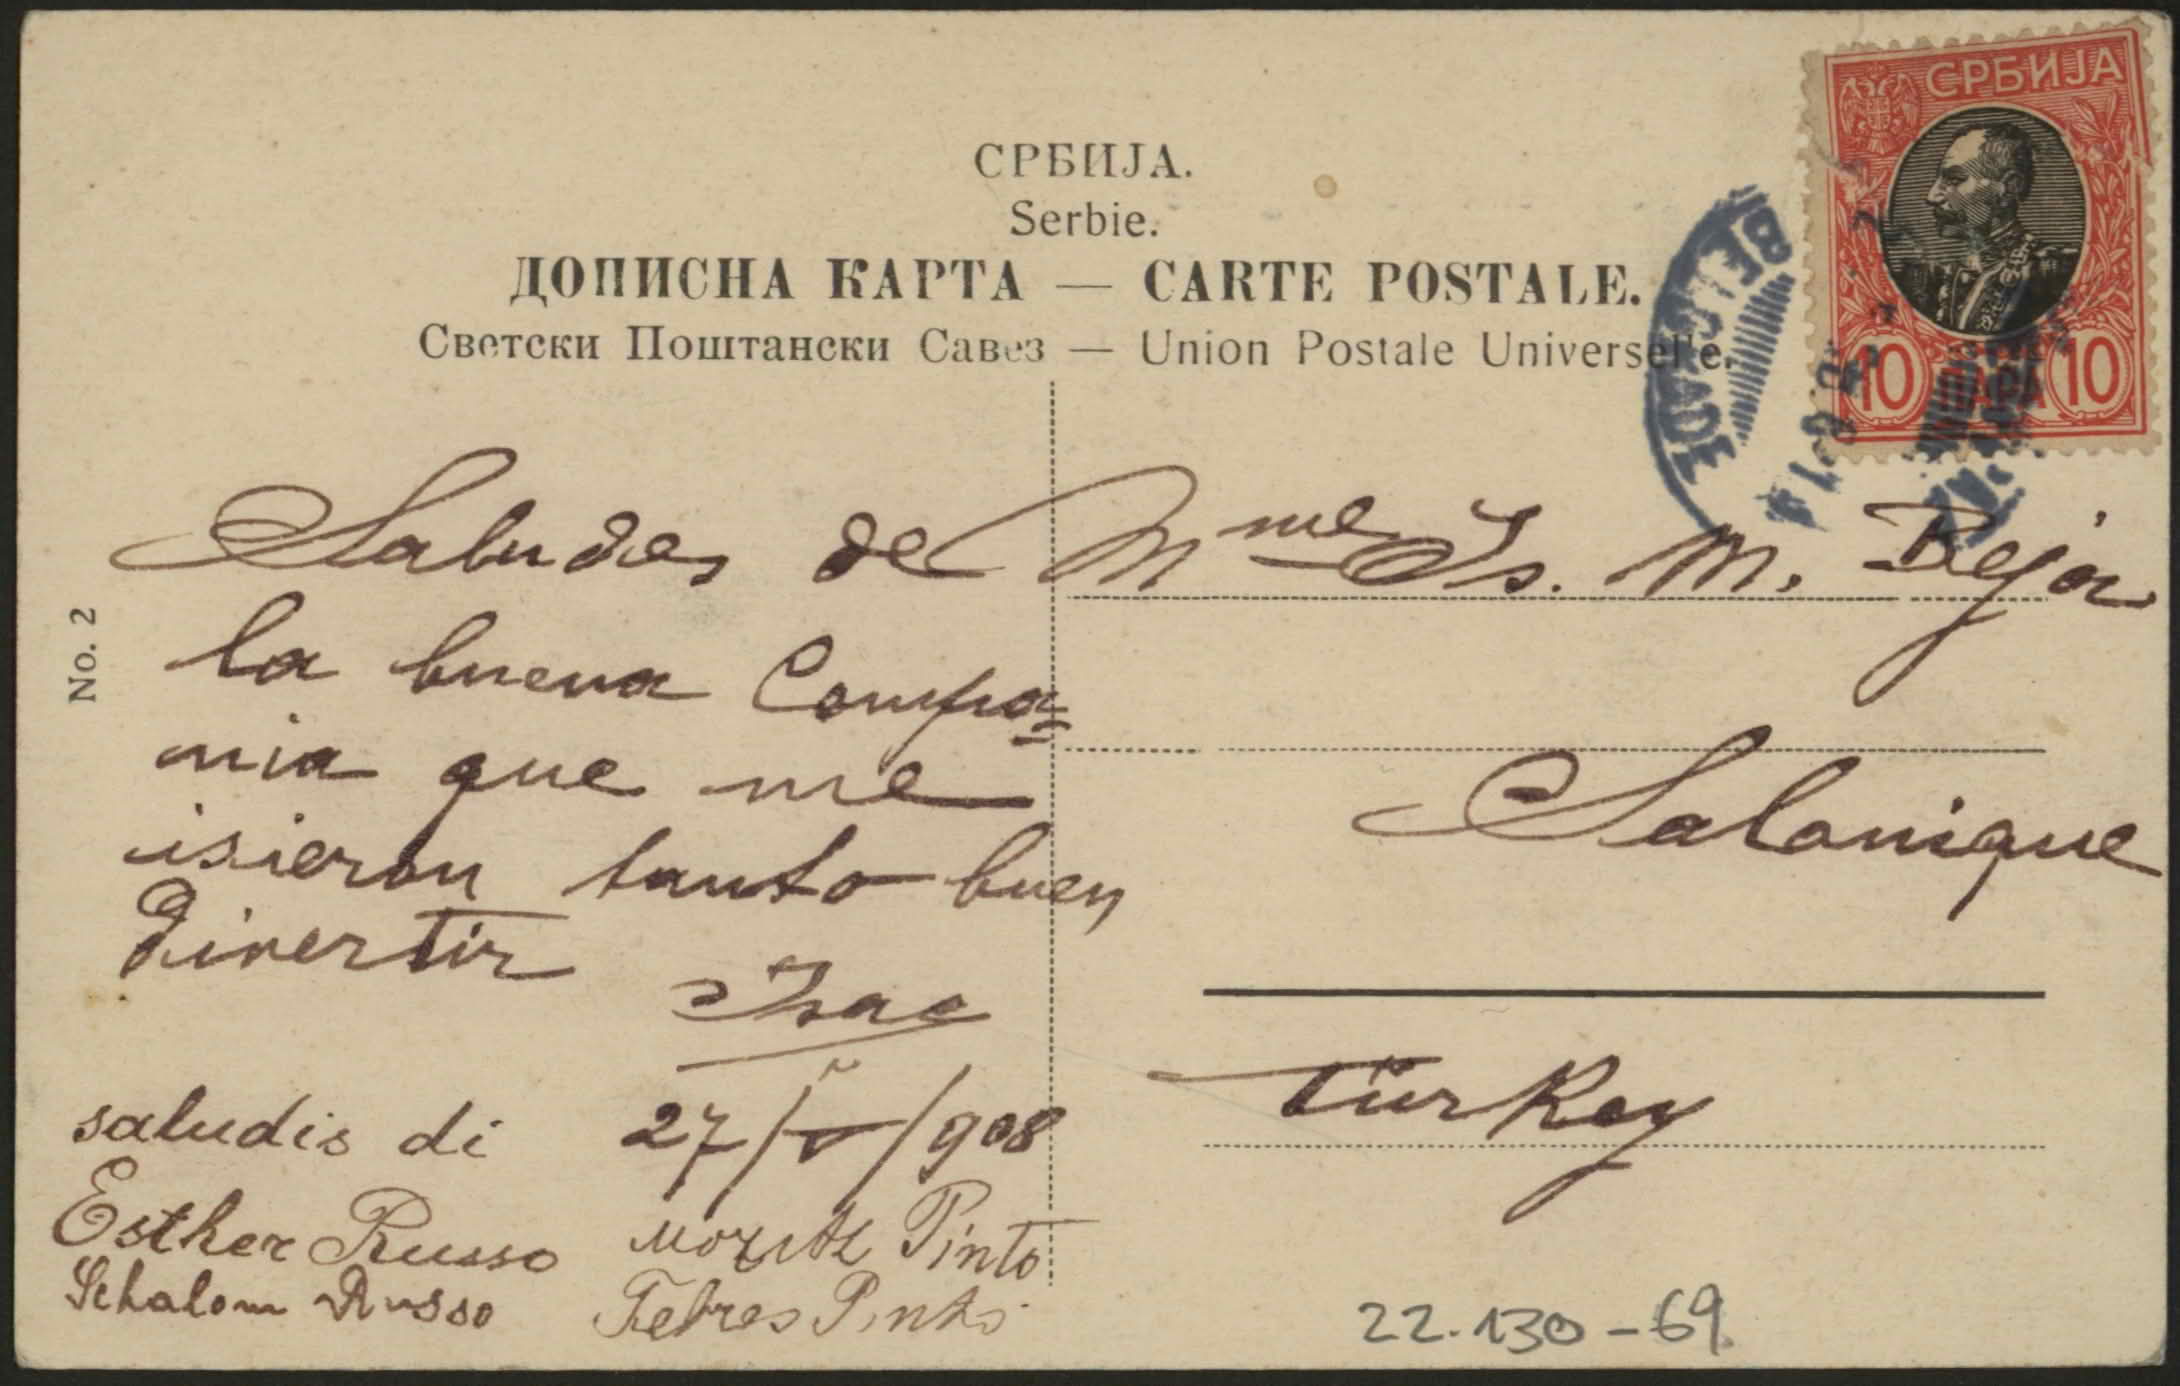 СРБИЈА
10 ПАРА 10
BELGRADE
СРБИЈА.
Serbie.
ДОПИСНА КАРТА — CARTE POSTALE.
Светски Поштански Савез — Union Postale Universelle.
No. 2
Saludes de
la buena Compa=
nia que me
isieron tanto buen
divertir
Isac
27/V/908
saludis di
Esther Russo
Schalom Russo
Moritz Pinto
Pinto
Mme Is. M. Beja
Salonique
Türkey
22.130-69